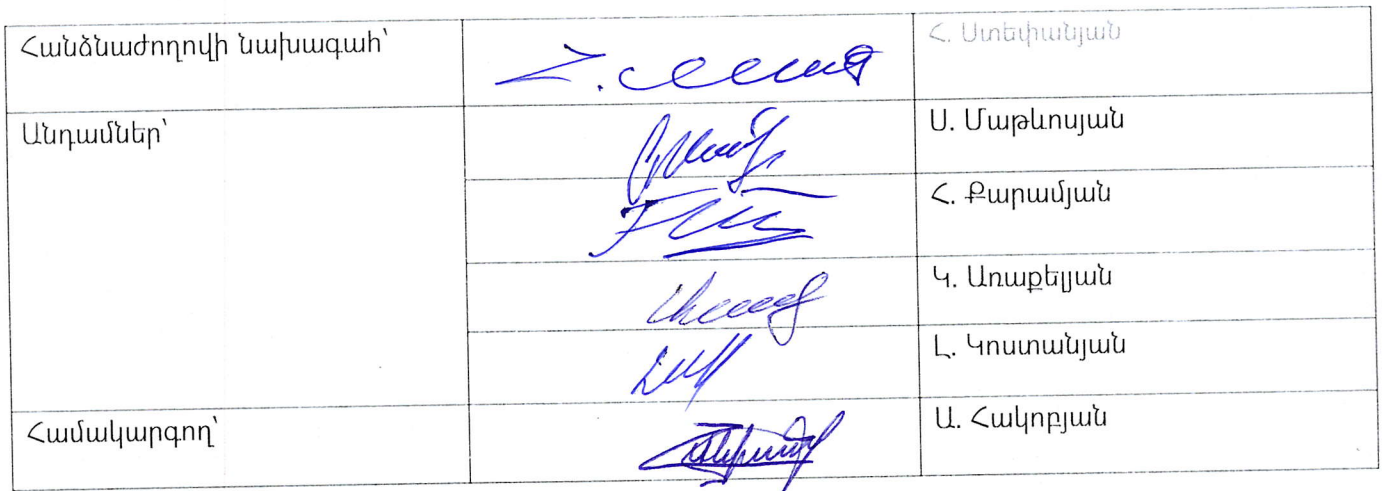 Հանձնաժողովի նախագահ՝
Հ. Ստեփանյան
Անդամներ՝
Ս. Մաթևոսյան
Հ. Քարամյան
Կ. Առաքելյան
Լ. Կոստանյան
Համակարգող՝
Ա. Հակոբյան